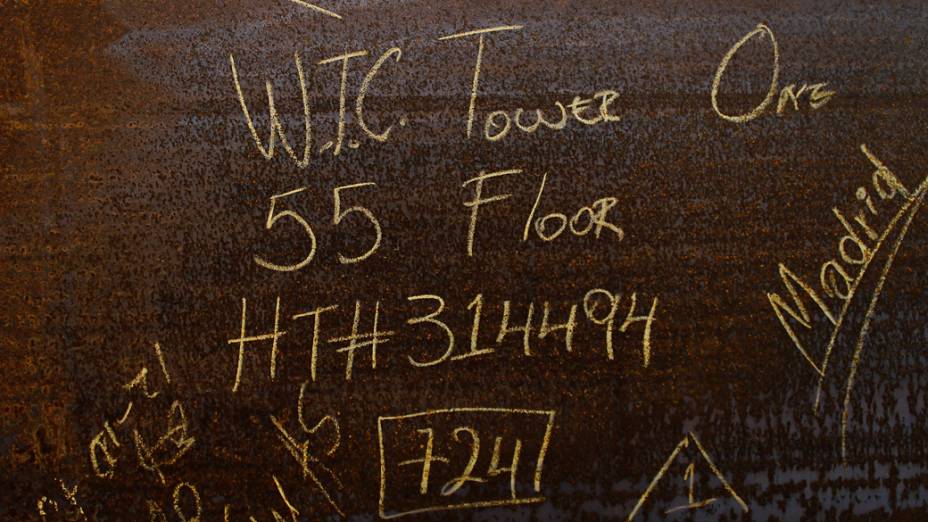 W.T.C. Tower One
55 Floor
HT#314494
Madrid
724
1